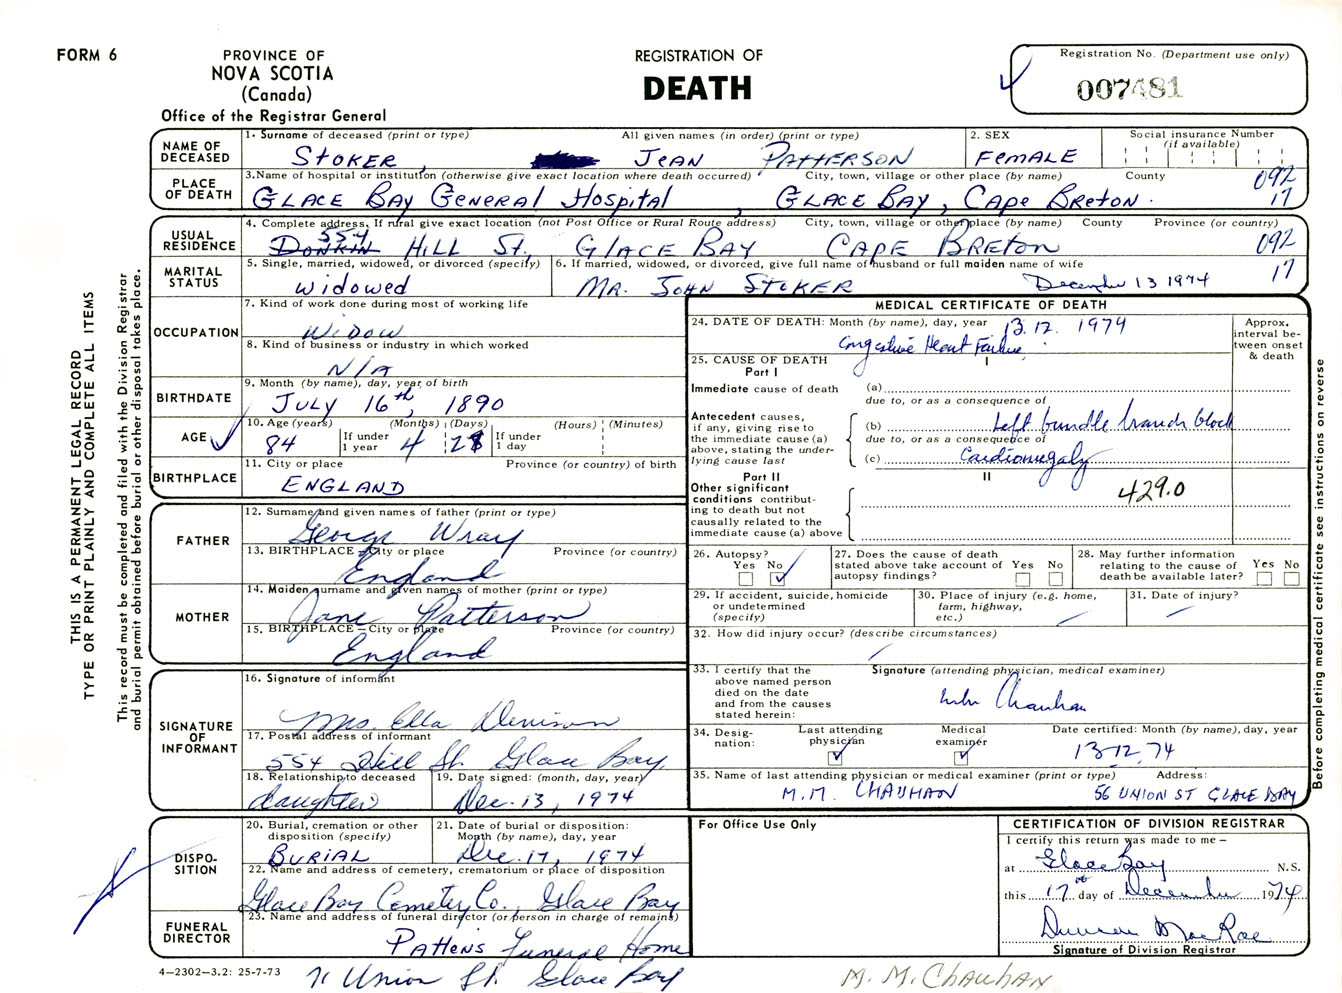 FORM 6
PROVINCE OF
NOVA SCOTIA
(Canada)
Office of the Registrar General
REGISTRATION OF
DEATH
Registration No. (Department use only)
007481
THIS IS A PERMANENT LEGAL RECORD
TYPE OR PRINT PLAINLY AND COMPLETE ALL ITEMS
This record must be completed and filed with the Division Registrar
and burial permit obtained before burial or other disposal takes place.
NAME OF DECEASED
1. Surname of deceased (print or type) All given names (in order) (print or type)
STOKER, JEAN PATTERSON
2. SEX
FEMALE
Social insurance Number
(if available)
PLACE OF DEATH
3. Name of hospital or institution (otherwise give exact location where death occurred) City, town, village or other place (by name) County
GLACE BAY GENERAL HOSPITAL, GLACE BAY, CAPE BRETON.
092
17
USUAL RESIDENCE
4. Complete address. If rural give exact location (not Post Office or Rural Route address) City, town, village or other place (by name) County Province (or country)
554
DONKIN HILL ST, GLACE BAY CAPE BRETON
092
17
MARITAL STATUS
5. Single, married, widowed, or divorced (specify)
Widowed
6. If married, widowed, or divorced, give full name of husband or full maiden name of wife
MR. JOHN STOKER
December 13 1974
OCCUPATION
7. Kind of work done during most of working life
WIDOW
8. Kind of business or industry in which worked
N/A
BIRTHDATE
9. Month (by name), day, year of birth
JULY 16th, 1890
AGE
10. Age (years) (Months) (Days) (Hours) (Minutes)
84 If under 1 year 4 28 If under 1 day
BIRTHPLACE
11. City or place Province (or country) of birth
ENGLAND
FATHER
12. Surname and given names of father (print or type)
George Wray
13. BIRTHPLACE — City or place Province (or country)
England
MOTHER
14. Maiden surname and given names of mother (print or type)
Jane Patterson
15. BIRTHPLACE — City or place Province (or country)
England
SIGNATURE OF INFORMANT
16. Signature of informant
Mrs. Ella Denison
17. Postal address of informant
554 Hill St. Glace Bay
18. Relationship to deceased
daughter
19. Date signed: (month, day, year)
Dec. 13, 1974
DISPOSITION
20. Burial, cremation or other disposition (specify)
BURIAL
21. Date of burial or disposition: Month (by name), day, year
Dec. 17, 1974
22. Name and address of cemetery, crematorium or place of disposition
Glace Bay Cemetery Co., Glace Bay
FUNERAL DIRECTOR
23. Name and address of funeral director (or person in charge of remains)
PATTENS Funeral Home
71 Union St. Glace Bay
4—2302—3.2: 25-7-73
MEDICAL CERTIFICATE OF DEATH
24. DATE OF DEATH: Month (by name), day, year 13.12.1974
Approx. interval between onset & death
Congestive Heart Failure
25. CAUSE OF DEATH
Part I
I
Immediate cause of death (a)
due to, or as a consequence of
Antecedent causes, if any, giving rise to the immediate cause (a) above, stating the underlying cause last
(b) Left bundle branch block
due to, or as a consequence of
(c) Cardiomegaly
Part II
II
Other significant conditions contributing to death but not causally related to the immediate cause (a) above
429.0
26. Autopsy?
Yes No
27. Does the cause of death stated above take account of autopsy findings?
Yes No
28. May further information relating to the cause of death be available later?
Yes No
29. If accident, suicide, homicide or undetermined (specify)
30. Place of injury (e.g. home, farm, highway, etc.)
31. Date of injury?
32. How did injury occur? (describe circumstances)
33. I certify that the above named person died on the date and from the causes stated herein:
Signature (attending physician, medical examiner)
Chauhan
34. Designation:
Last attending physician
Medical examiner
Date certified: Month (by name), day, year
13-12.74
35. Name of last attending physician or medical examiner (print or type) Address:
M.M. CHAUHAN 56 UNION ST GLACE BAY
Before completing medical certificate see instructions on reverse
For Office Use Only
CERTIFICATION OF DIVISION REGISTRAR
I certify this return was made to me —
at Glace Bay N.S.
this 17th day of December 1974
Duncan MacRae
Signature of Division Registrar
M. M. Chauhan